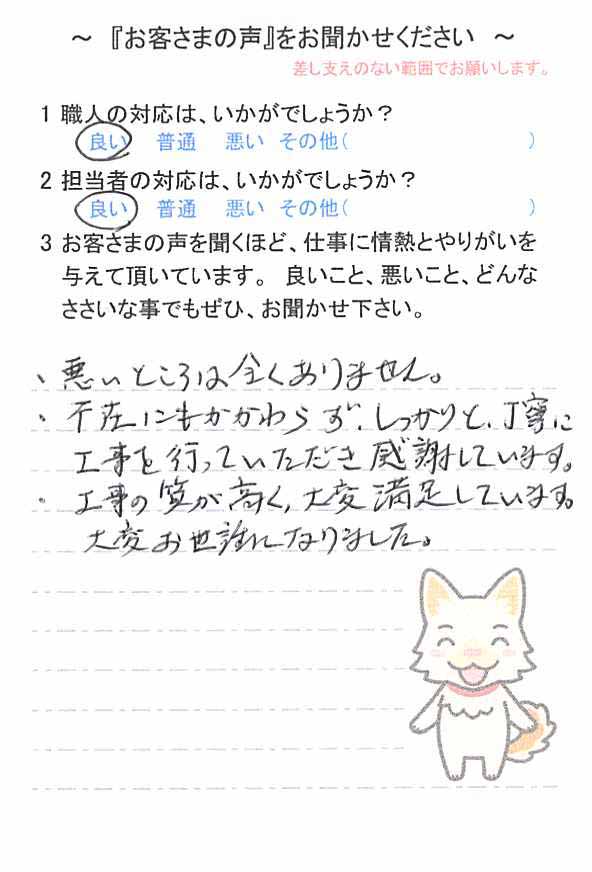 ～ 『お客さまの声』をお聞かせください ～
差し支えのない範囲でお願いします。
1 職人の対応は、いかがでしょうか？
良い 普通 悪い その他( )
2 担当者の対応は、いかがでしょうか？
良い 普通 悪い その他( )
3 お客さまの声を聞くほど、仕事に情熱とやりがいを
与えて頂いています。 良いこと、悪いこと、どんな
ささいな事でもぜひ、お聞かせ下さい。
、悪いところは全くありません。
・不在にもかかわらず、しっかりと、丁寧に
工事を行っていただき感謝しています。
・工事の質が高く、大変満足しています。
大変お世話になりました。